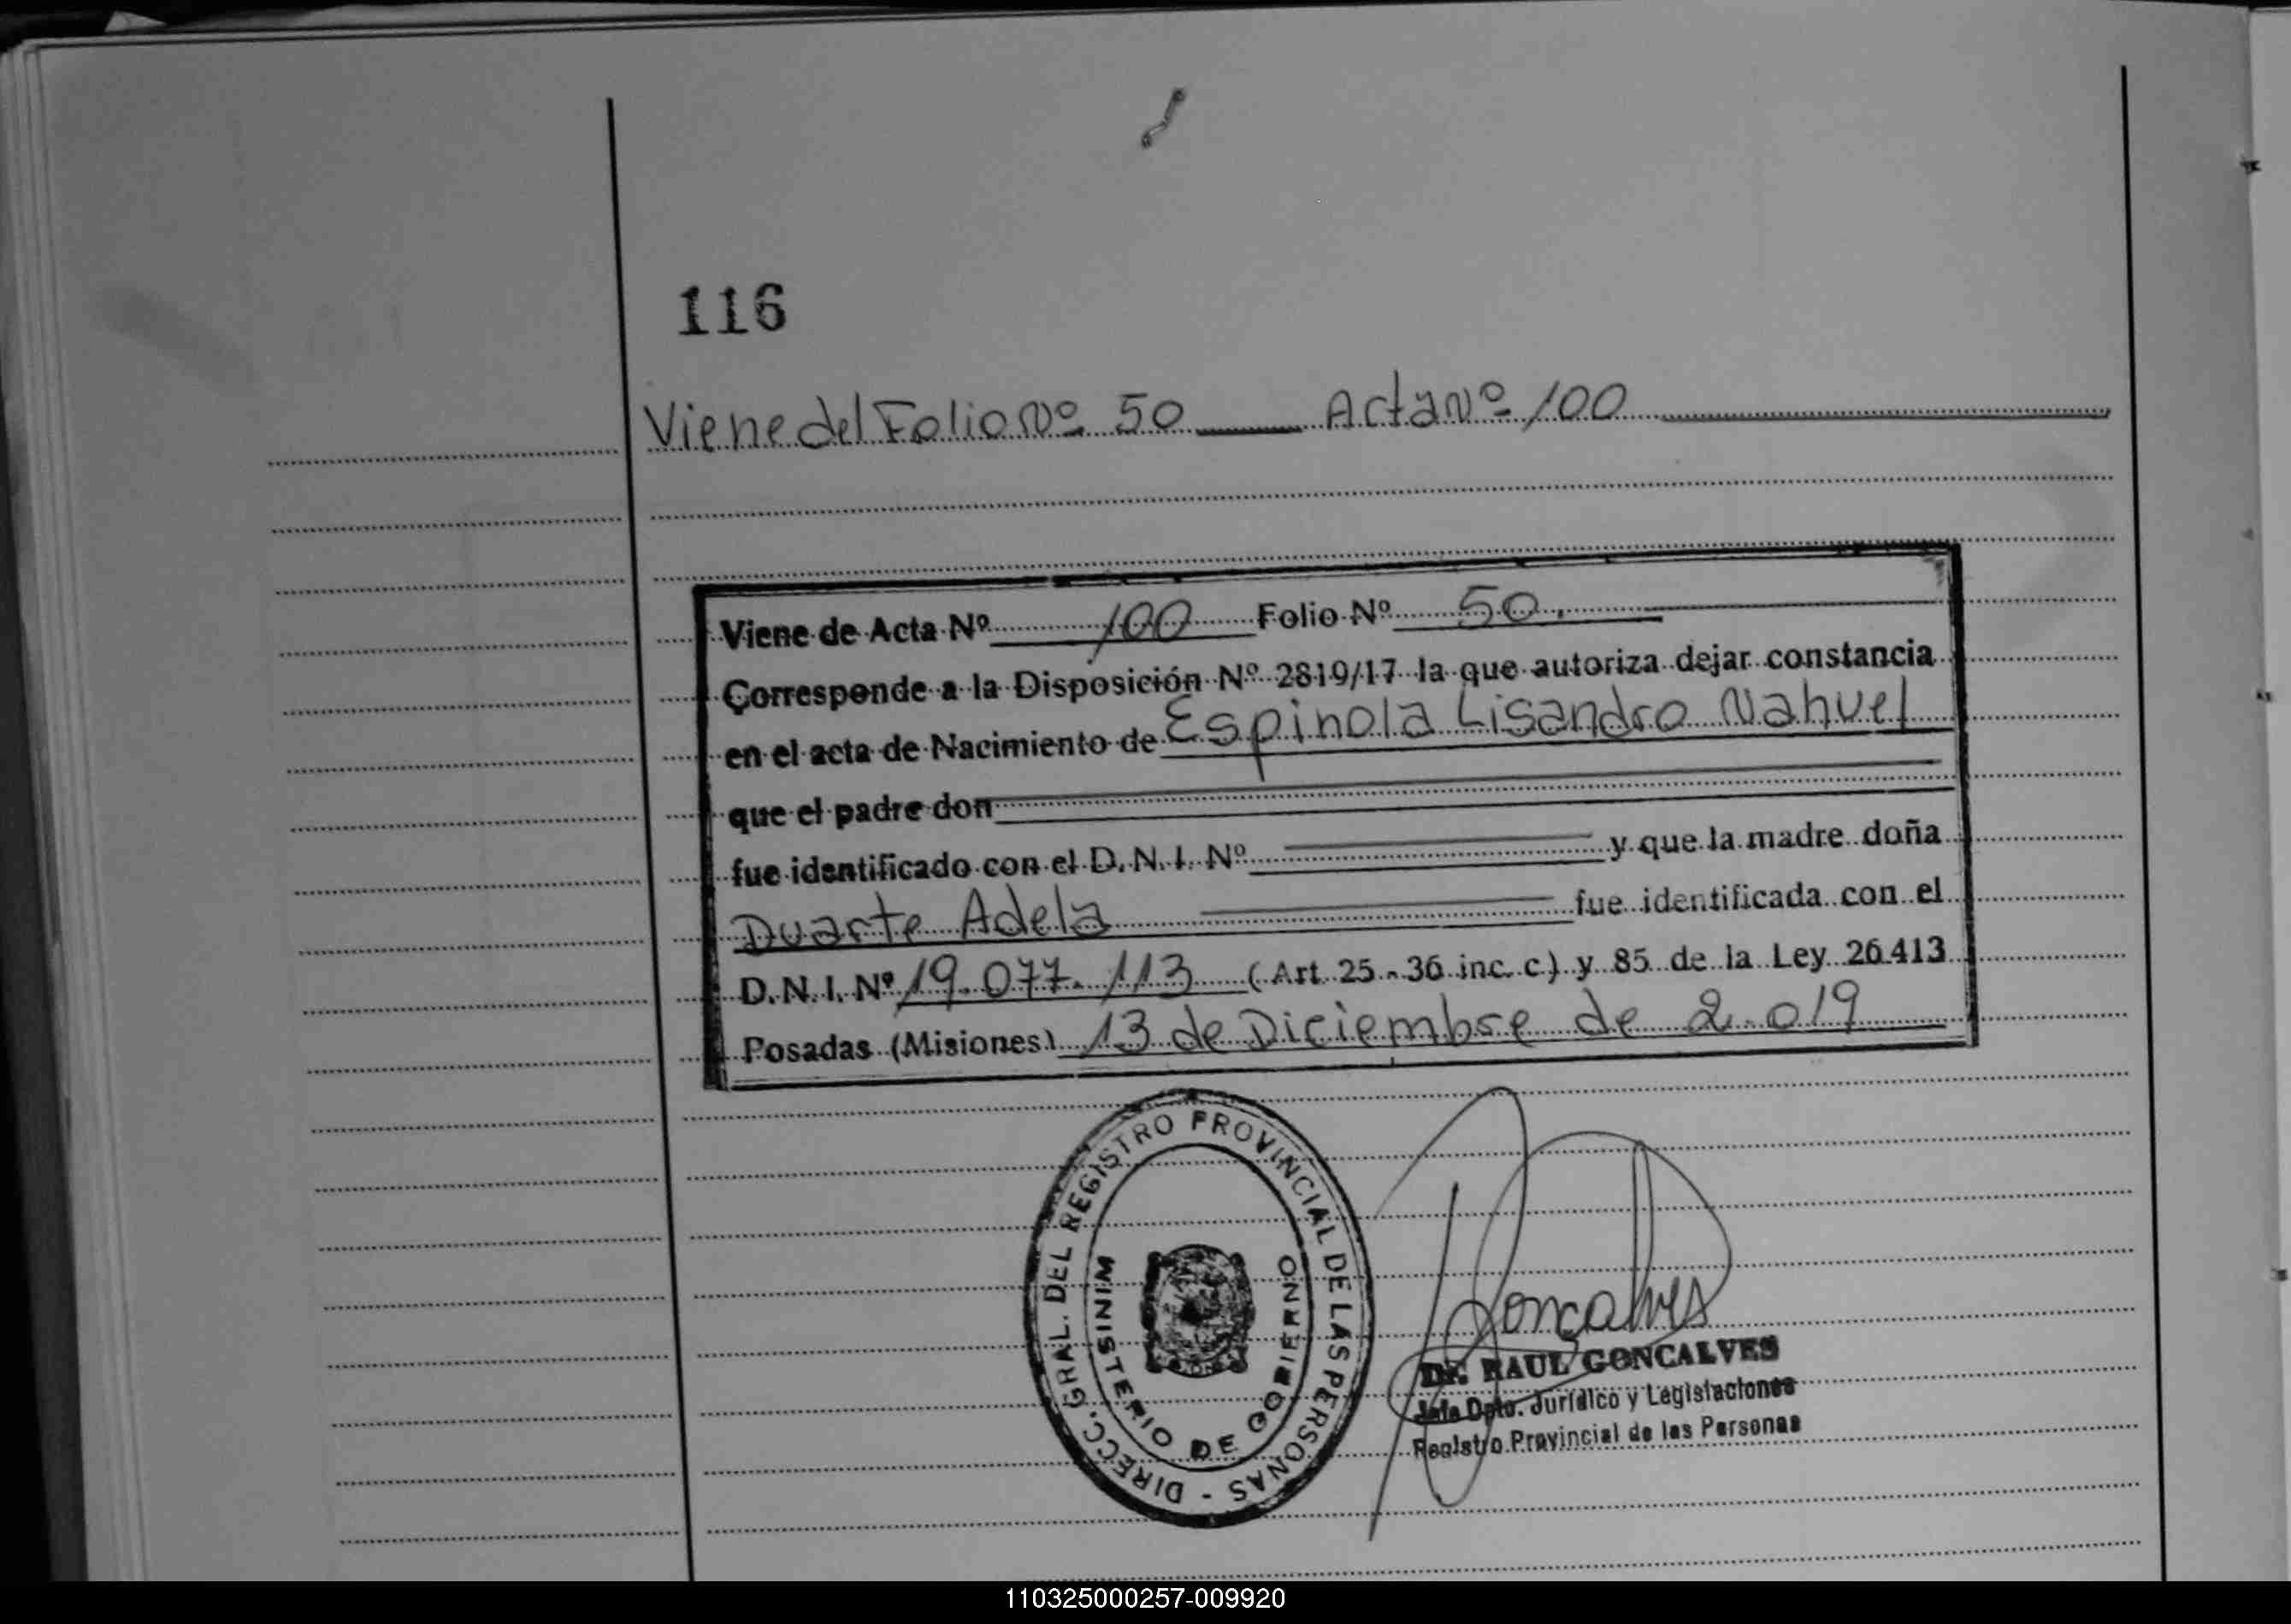 116
Viene del Folio Nº 50 Acta Nº 100
Viene de Acta Nº 100 Folio Nº 50.
Corresponde a la Disposición Nº 2819/17 la que autoriza dejar constancia
en el acta de Nacimiento de Espinola Lisandro Nahuel
que el padre don
fue identificado con el D.N.I. Nº y que la madre doña
Duarte Adela fue identificada con el
D.N.I. Nº 19.077.113 (Art. 25 - 36 inc. c) y 85 de la Ley 26.413
Posadas (Misiones) 13 de Diciembre de 2.019
DIRECC. GRAL. DEL REGISTRO PROVINCIAL DE LAS PERSONAS -
MINISTERIO DE GOBIERNO
Goncalves
Dr. RAUL GONCALVES
Jefe Dpto. Jurídico y Legislaciones
Registro Provincial de las Personas
110325000257-009920